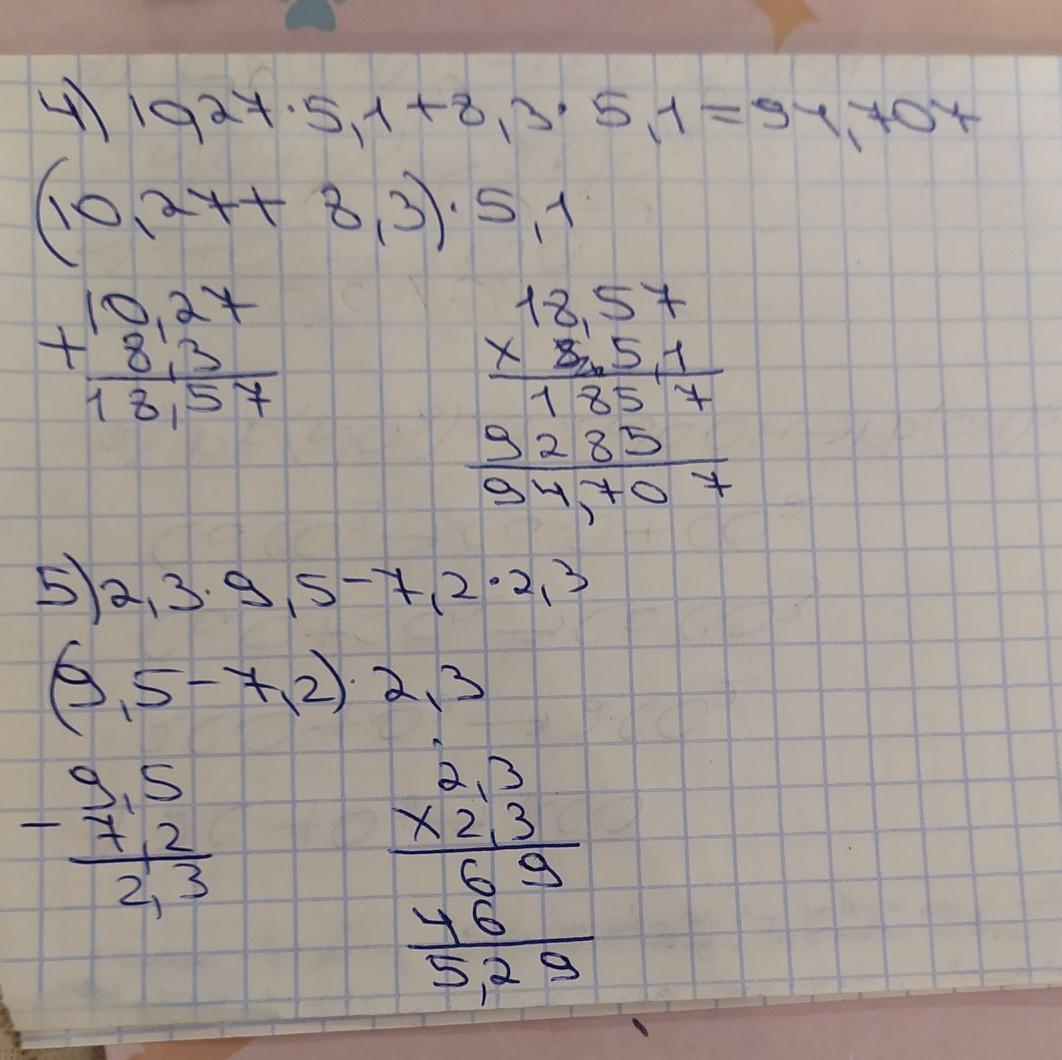 4) 10,27·5,1+8,3·5,1=94,707
(10,27+8,3)·5,1
10,27
+ 8,3
18,57
18,57
x 5,1
1857
9285
94,707
5) 2,3·9,5-7,2·2,3
(9,5-7,2)·2,3
9,5
- 7,2
2,3
2,3
x 2,3
69
46
5,29